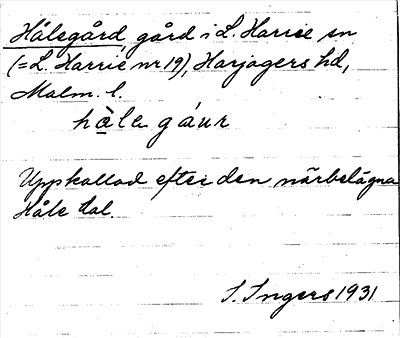 Hålegård, gård i L. Harrie sn
(= L. Harrie nr 19), Harjagers hd,
Malm. l.
hàle gáur
Uppkallad efter den närbelägna
Håle dal.
I. Ingers 1931